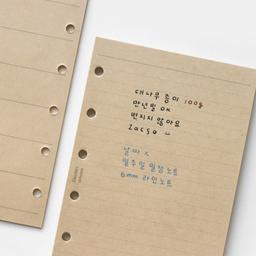 대나무 종이 100%
만년필 OK
번지지 않아요
날짜 x
일주일 일정노트
6mm 라인노트